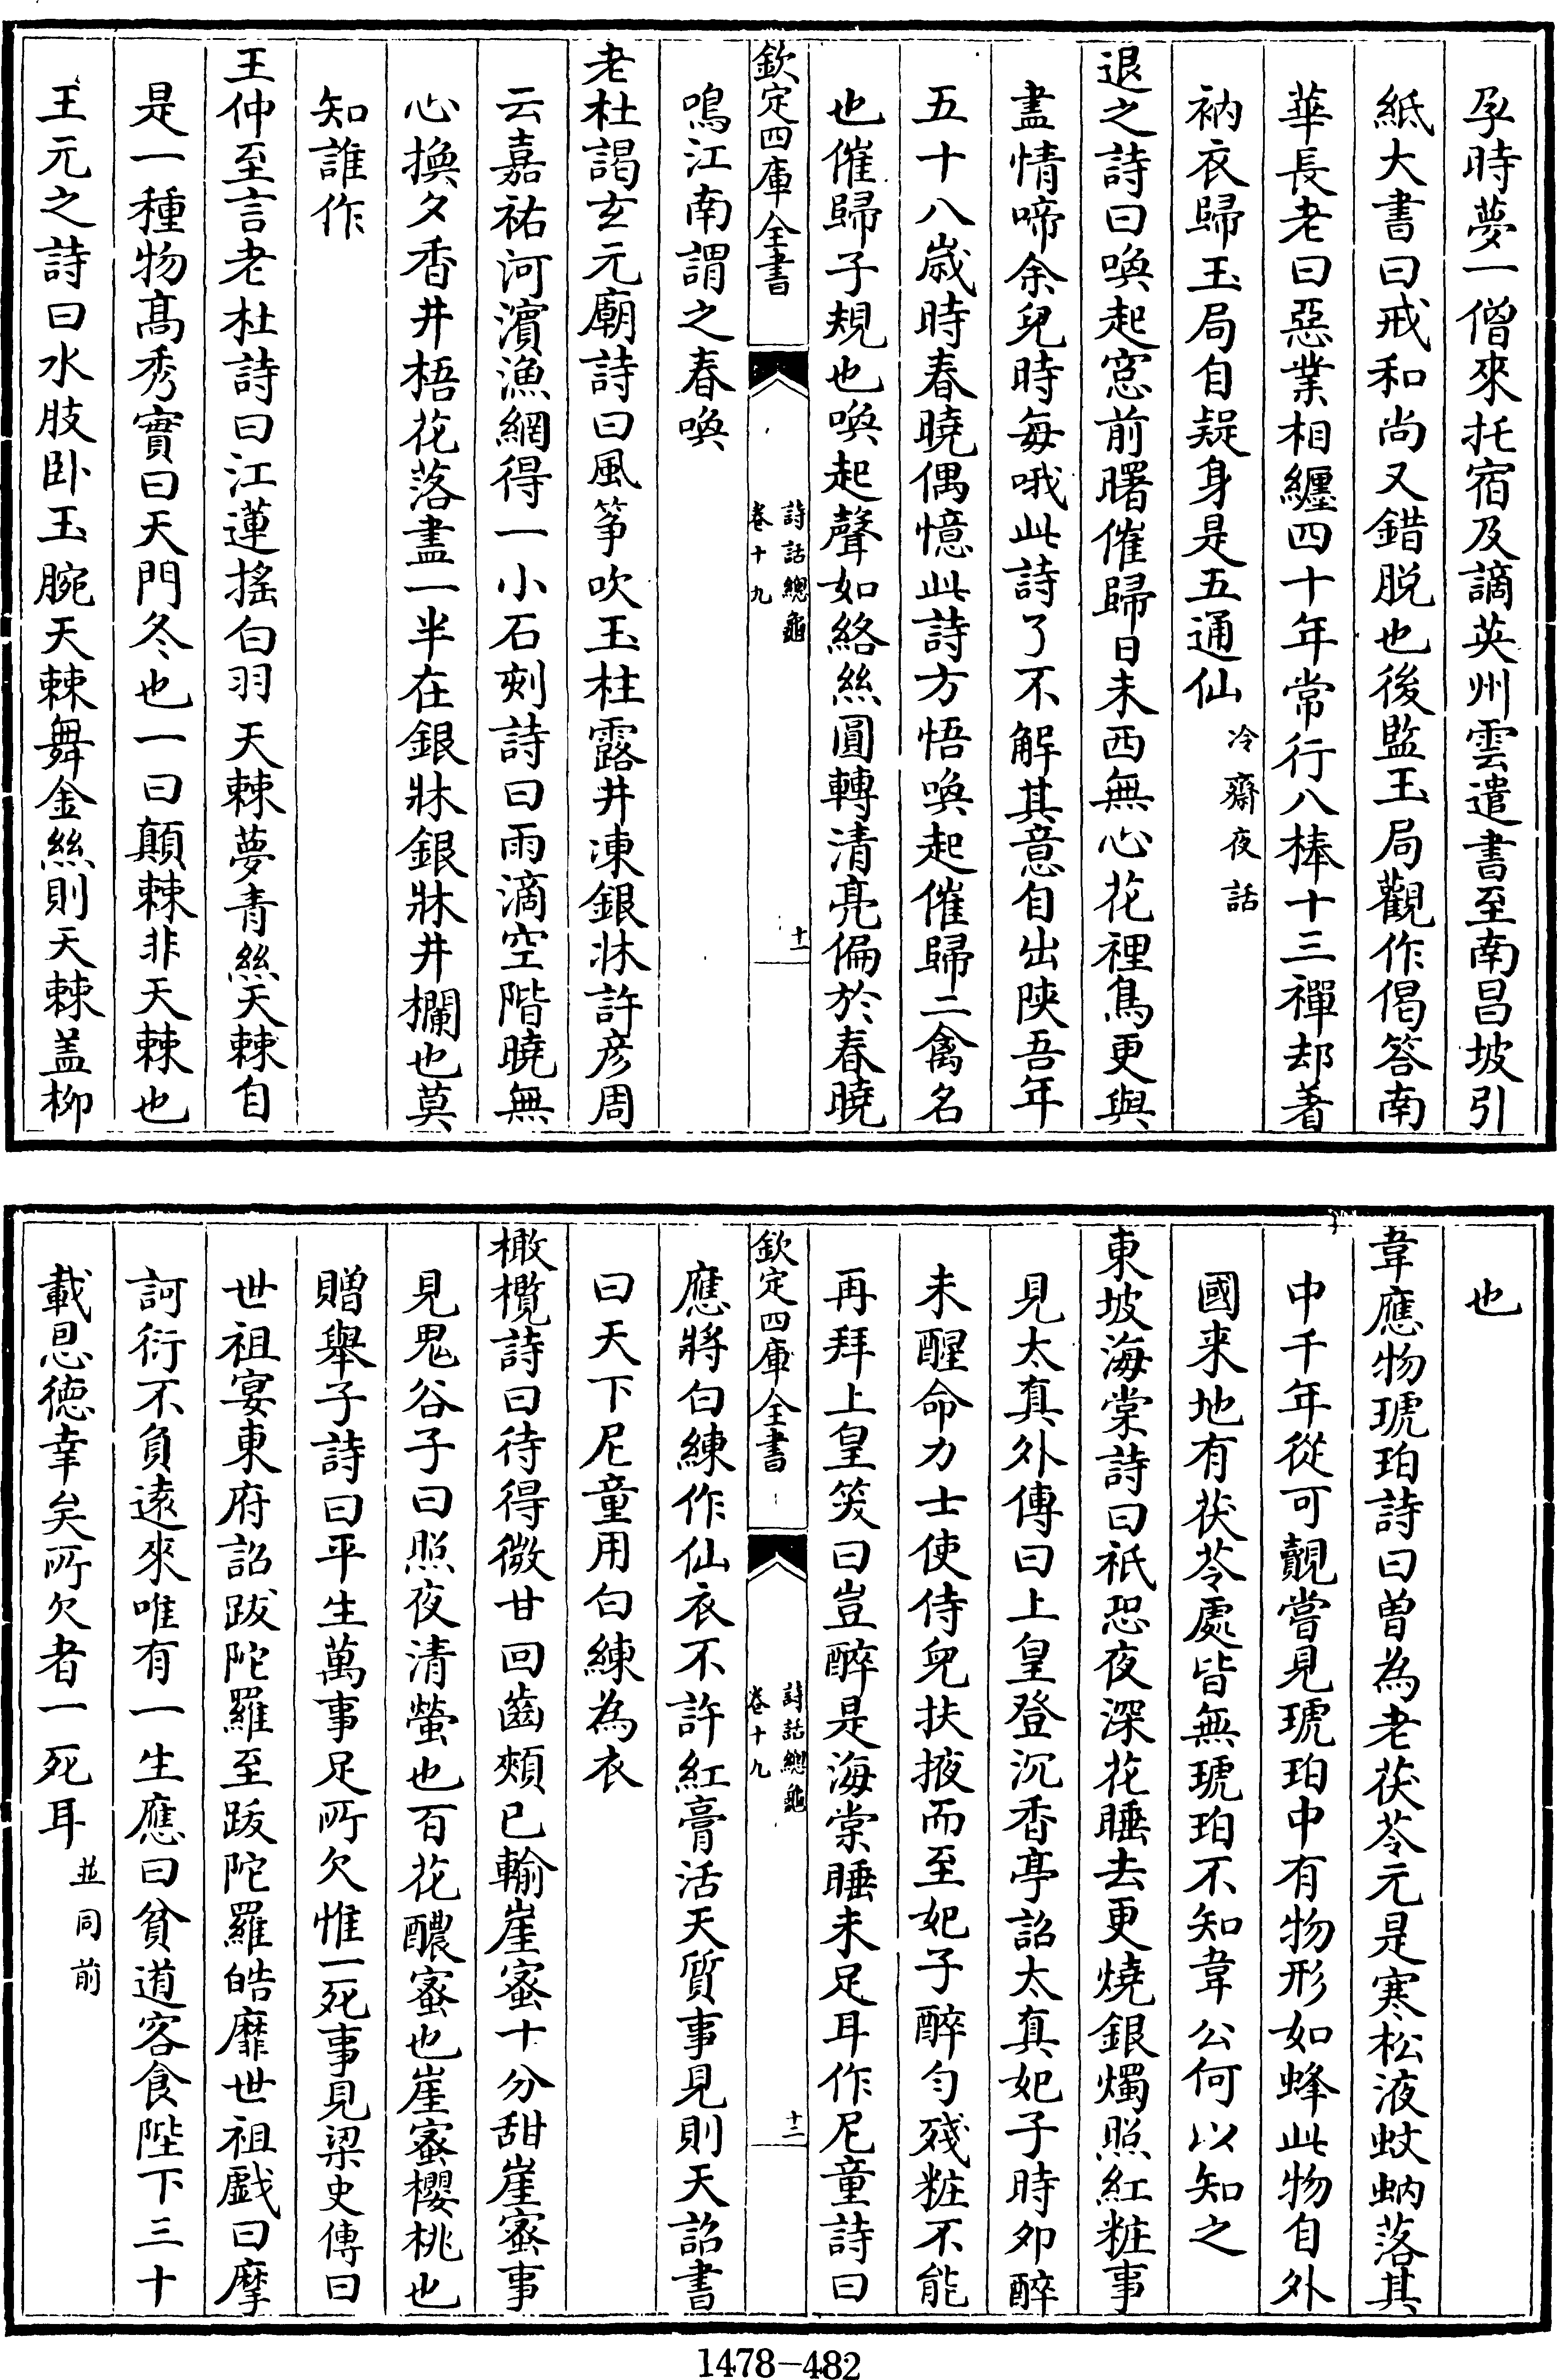 孕時夢一僧來托宿及謫英州雲遣書至南昌坡引
紙大書曰戒和尚又錯脱也後監玉局觀作偈答南
華長老曰惡業相纏四十年常行八棒十三禪却著
衲衣歸玉局自疑身是五通仙冷齋夜話
退之詩曰喚起窓前曙催歸日未西無心花裡鳥更與
盡情啼余兒時每哦此詩了不解其意自出陜吾年
五十八歳時春曉偶憶此詩方悟喚起催歸二禽名
也催歸子規也喚起聲如絡絲圓轉清亮偏於春曉
欽定四庫全書
詩話總龜
卷十九
十一
鳴江南謂之春喚
老杜謁玄元廟詩曰風筝吹玉柱露井凍銀牀許彦周
云嘉祐河濵漁網得一小石刻詩曰雨滴空階曉無
心換夕香井梧花落盡一半在銀牀銀牀井欄也莫
知誰作
王仲至言老杜詩曰江蓮揺白羽天棘夢青絲天棘自
是一種物髙秀實曰天門冬也一曰顛棘非天棘也
王元之詩曰水肢卧玉腕天棘舞金絲則天棘盖柳
也
韋應物琥珀詩曰曽為老茯苓元是寒松液蚊蚋落其
中千年從可覿嘗見琥珀中有物形如蜂此物自外
國来地有茯苓處皆無琥珀不知韋公何以知之
東坡海棠詩曰祇恐夜深花睡去更燒銀燭照紅粧事
見太真外傳曰上皇登沉香亭詔太真妃子時夘醉
未醒命力士使侍兒扶掖而至妃子醉勻殘粧不能
再拜上皇笑曰豈醉是海棠睡未足耳作尼童詩曰
欽定四庫全書
詩話總龜
卷十九
十二
應將白練作仙衣不許紅膏活天質事見則天詔書
曰天下尼童用白練為衣
橄欖詩曰待得微甘回齒頰已輸崖蜜十分甜崖蜜事
見鬼谷子曰照夜清螢也百花醲蜜也崖蜜櫻桃也
贈舉子詩曰平生萬事足所欠惟一死事見梁史傳曰
世祖宴東府詔跋陀羅至跋陀羅皓靡世祖戯曰摩
訶衍不負逺來唯有一生應曰貧道客食陛下三十
載恩徳幸矣所欠者一死耳並同前
1478—482